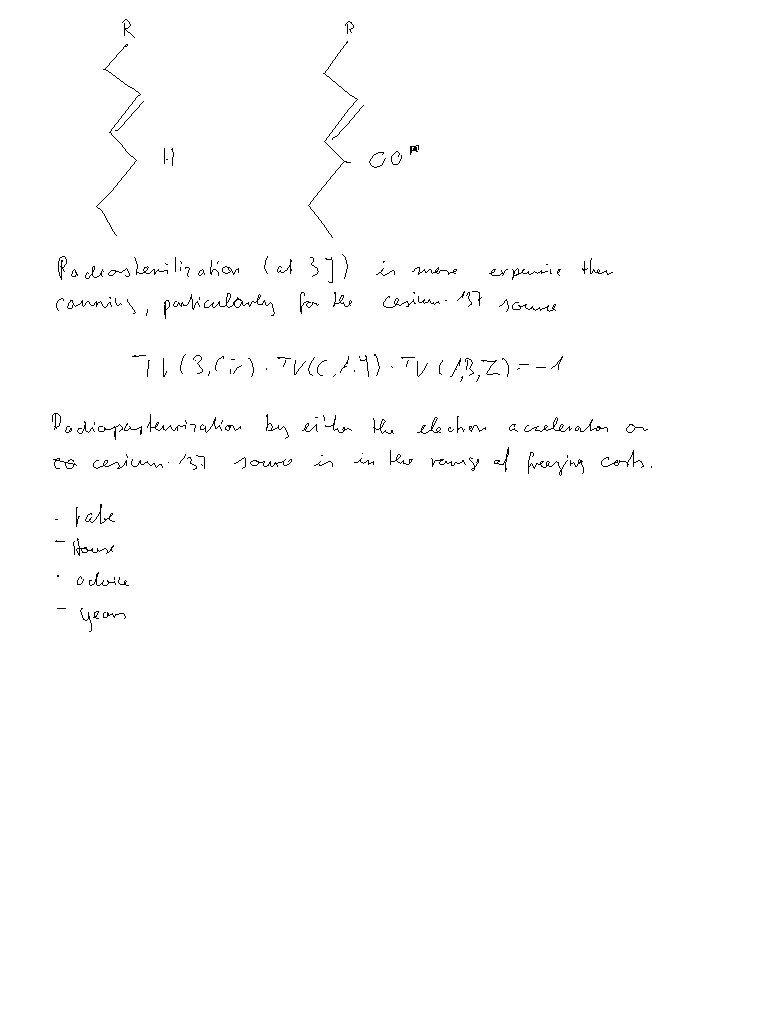 R R
H OO
Radiosterilization (at 3¢) is more expensive than
canning, particularly for the cesium-137 source
TV(B,C,X) · TV(C,A,Y) · TV(A,B,Z) = -1
Radiopasteurization by either the electron accelerator or
cesium-137 source is in the range of freezing costs.
- take
- House
- advice
- years